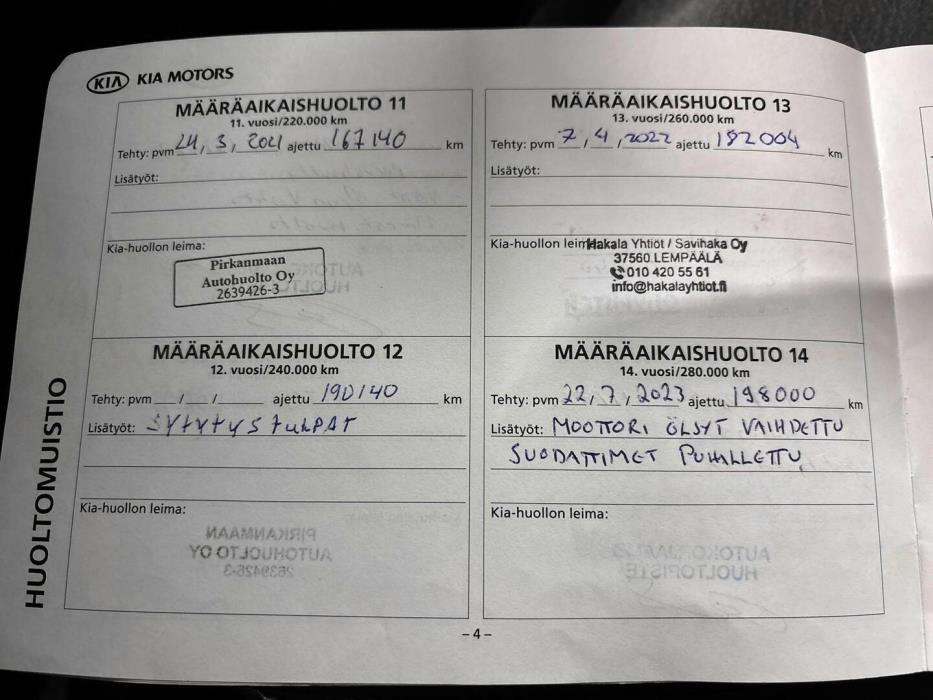 KIA KIA MOTORS
MÄÄRÄAIKAISHUOLTO 11
11. vuosi/220.000 km
Tehty: pvm 24, 3, 2021 ajettu 167140 km
Lisätyöt:
Kia-huollon leima:
Pirkanmaan
Autohuolto Oy
2639426-3
MÄÄRÄAIKAISHUOLTO 12
12. vuosi/240.000 km
Tehty: pvm / / ajettu 190140 km
Lisätyöt: SYTYTYSTULPAT
Kia-huollon leima:
MÄÄRÄAIKAISHUOLTO 13
13. vuosi/260.000 km
Tehty: pvm 7 / 4 / 2022 ajettu 182004 km
Lisätyöt:
Kia-huollon leim
Hakala Yhtiöt / Savihaka Oy
37560 LEMPÄÄLÄ
010 420 55 61
info@hakalayhtiot.fi
MÄÄRÄAIKAISHUOLTO 14
14. vuosi/280.000 km
Tehty: pvm 22, 7, 2023 ajettu 198000 km
Lisätyöt: MOOTTORI ÖLJYT VAIHDETTU
SUODATTIMET PUHALLETTU
Kia-huollon leima:
HUOLTOMUISTIO
– 4 –